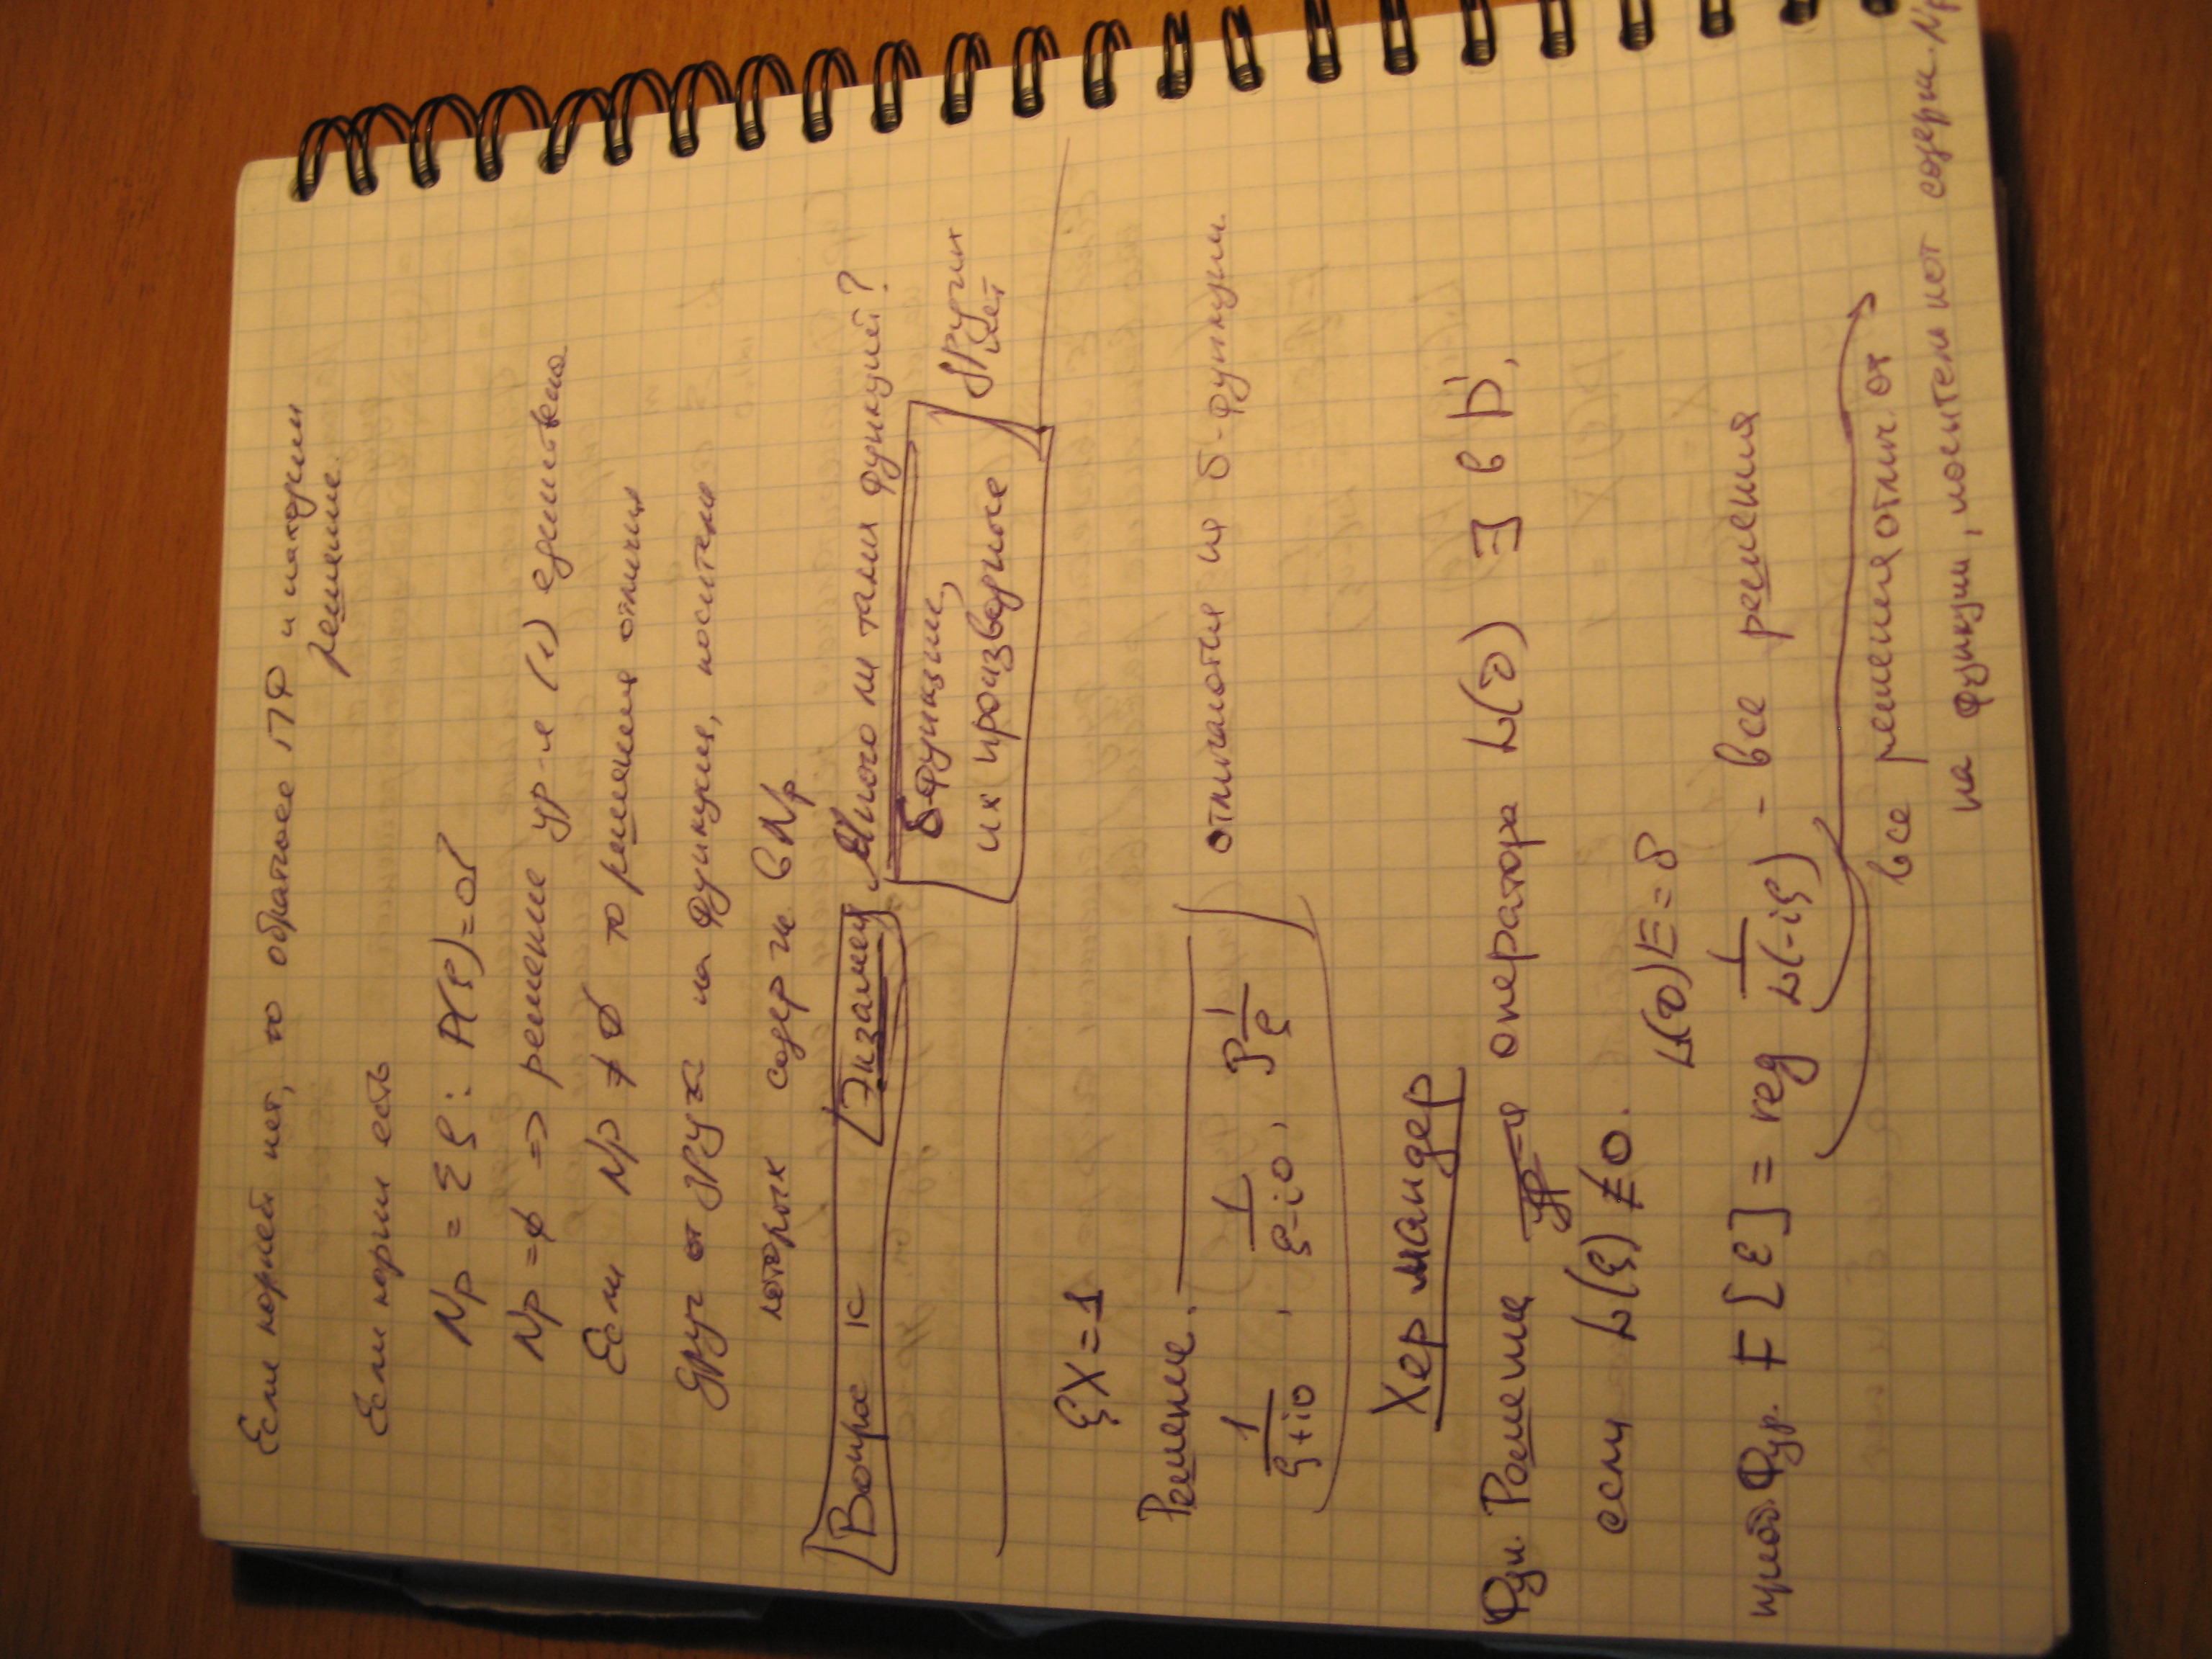 Если корней нет, то обратное ПФ и находим
решение.
Если корни есть
Np = {ξ: P(ξ)=0}
Np = ∅ => решение ур-я (1) единственно.
Если Np ≠ ∅ то решения отличия
друг от друга на функции, носители
которых содерж в Np
Вопрос к Экзамену Много ли таких функций?
δ-функции, других
их производные нет
ξX=1
Решение.
1/(ξ+i0), 1/(ξ-i0), P 1/ξ отличаются на δ-функции.
Хермандер
Фун. Решение ур-я оператора L(∂) ∃ в D',
если L(ξ) ≠ 0.
L(∂)E=δ
преоб. Фур. F[E] = reg 1/L(-iξ) - все решения
все решения отлич. от
на функции, носители кот содерж. Np